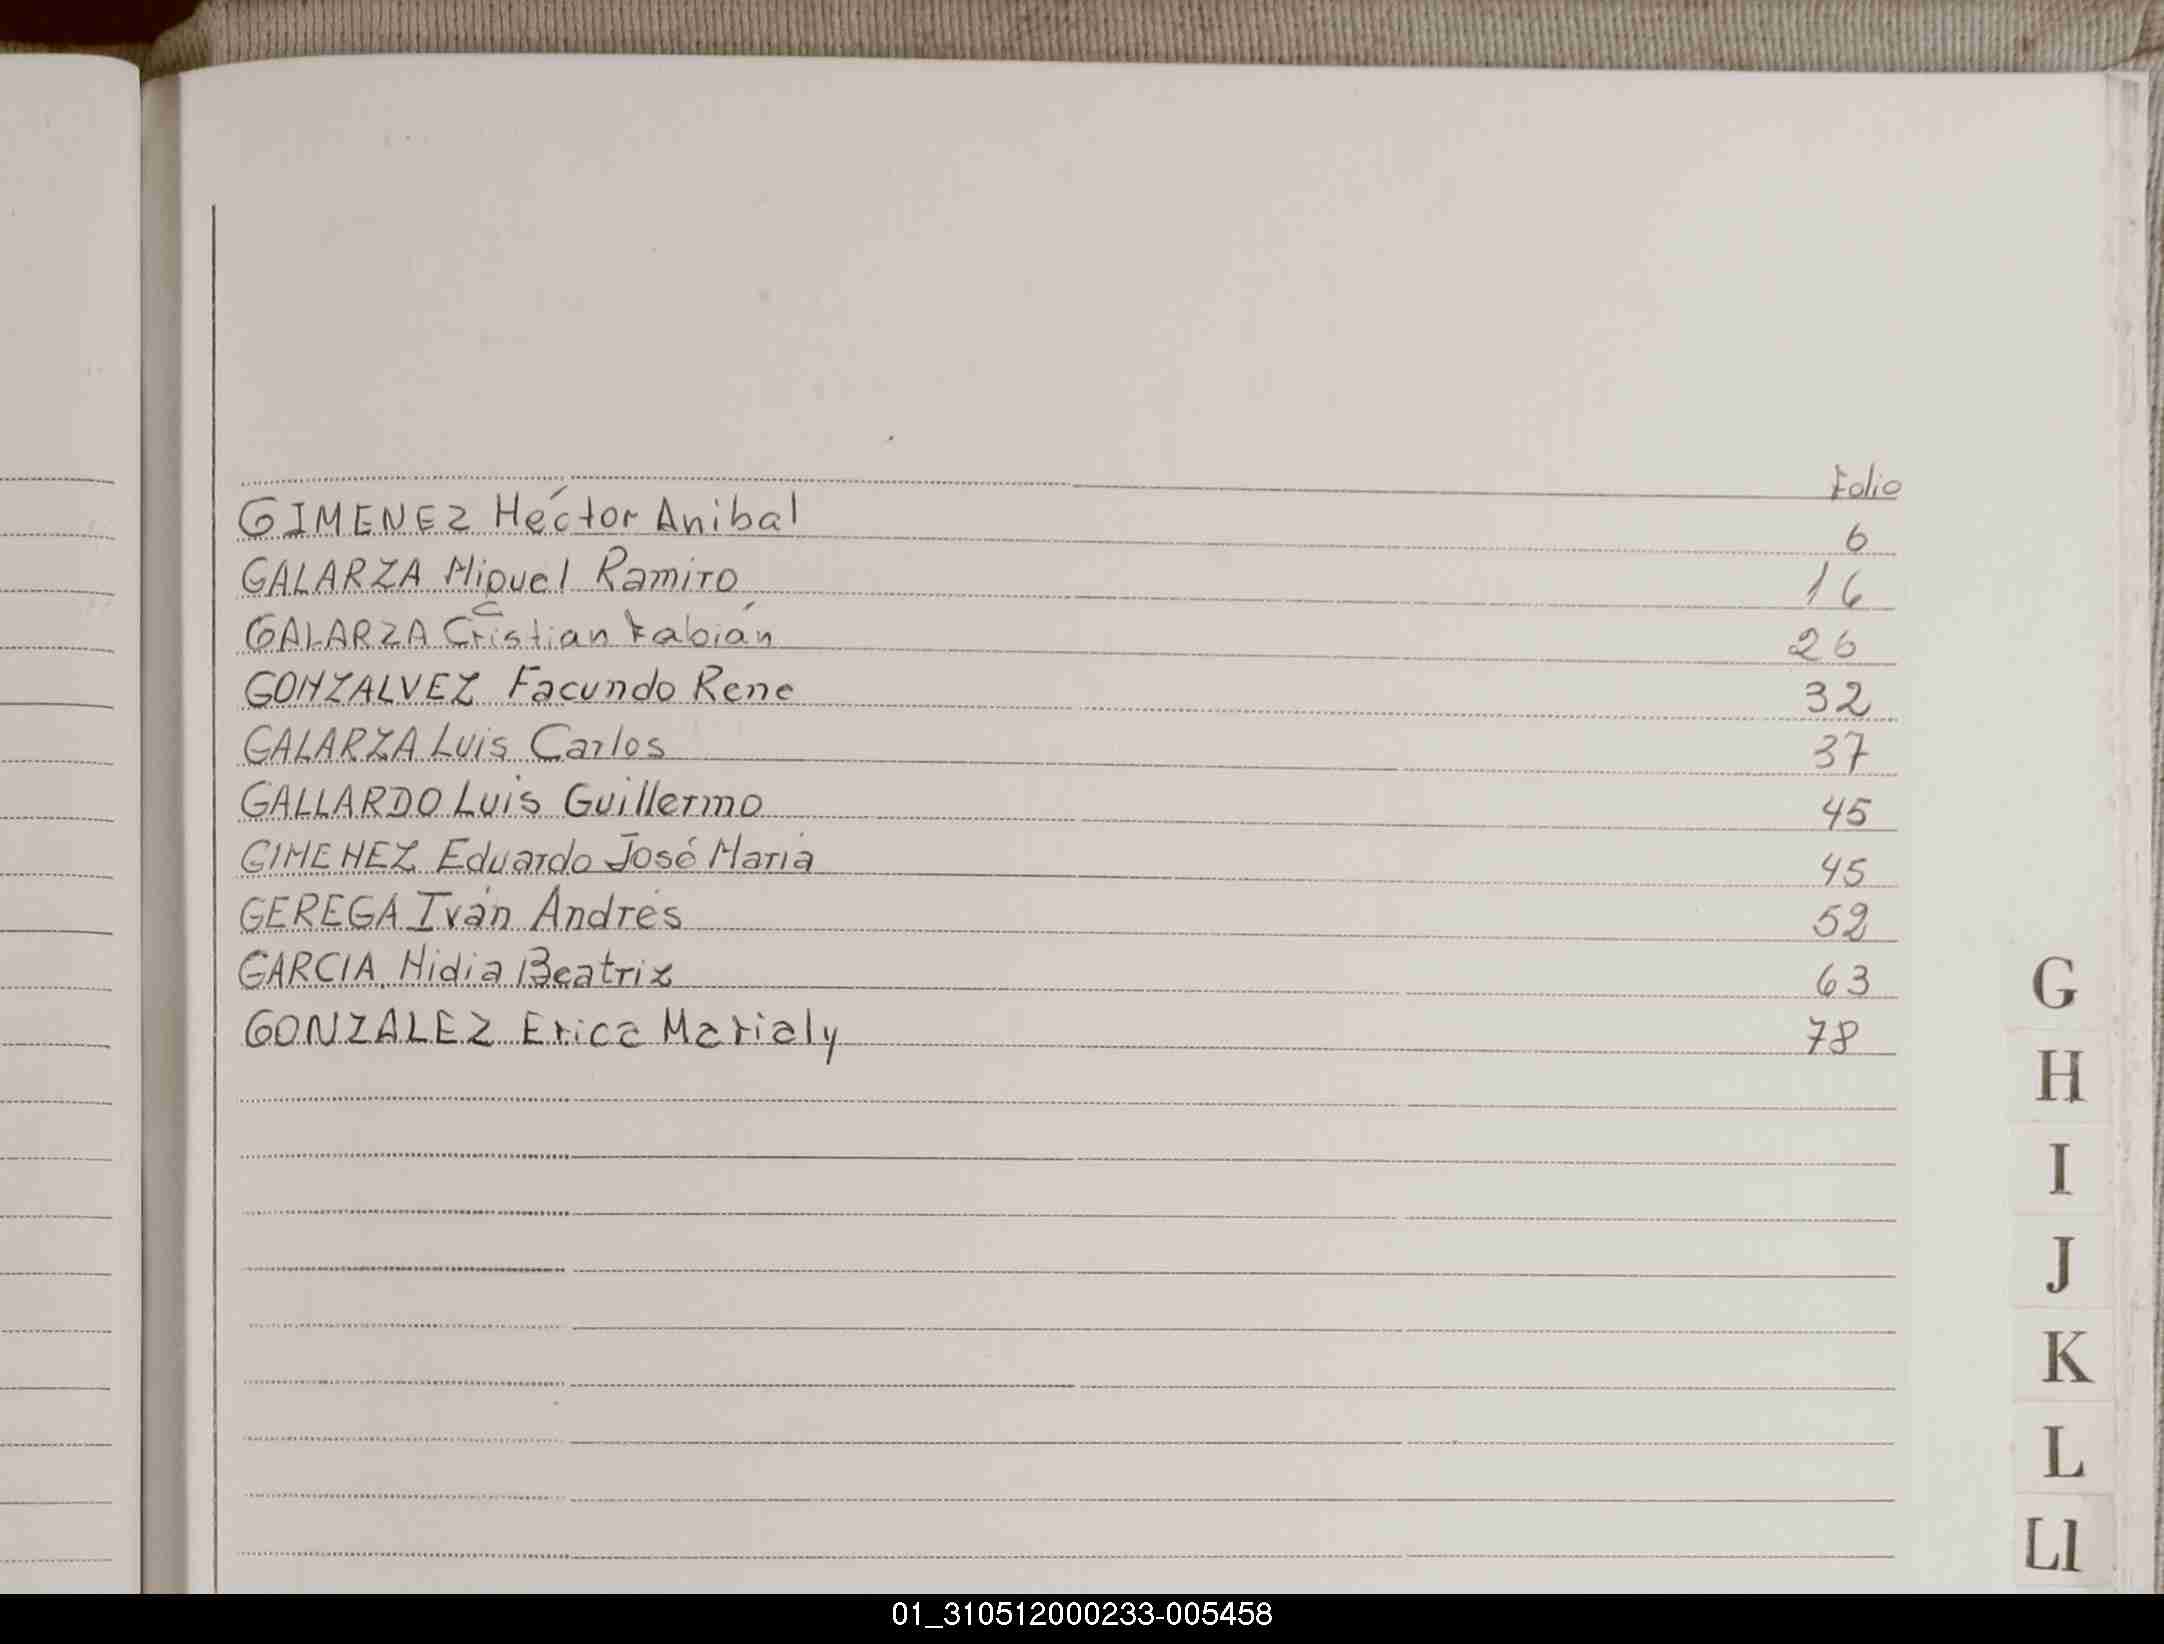 Folio
GIMENEZ Héctor Anibal 6
GALARZA Miguel Ramiro 16
GALARZA Cristian Fabián 26
GONZALVEZ Facundo Rene 32
GALARZA Luis Carlos 37
GALLARDO Luis Guillermo 45
GIMENEZ Eduardo José María 45
GEREGA Iván Andrés 52
GARCIA Nidia Beatriz 63
GONZALEZ Erica Marialy 78
G
H
I
J
K
L
Ll
01_310512000233-005458